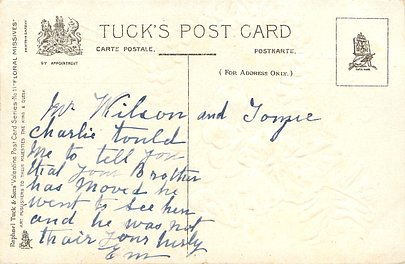 TUCK'S POST CARD
CARTE POSTALE.
POSTKARTE.
(FOR ADDRESS ONLY.)
BY APPOINTMENT
Raphael Tuck & Sons' Valentine Post Card Series "FLORAL MISSIVES"
ART PUBLISHERS TO THEIR MAJESTIES THE KING & QUEEN.
Mr Wilson and
Charlie tould
Me to tell you
that your Brother
has Moved he
went to see him
and he was not
thair your
Em